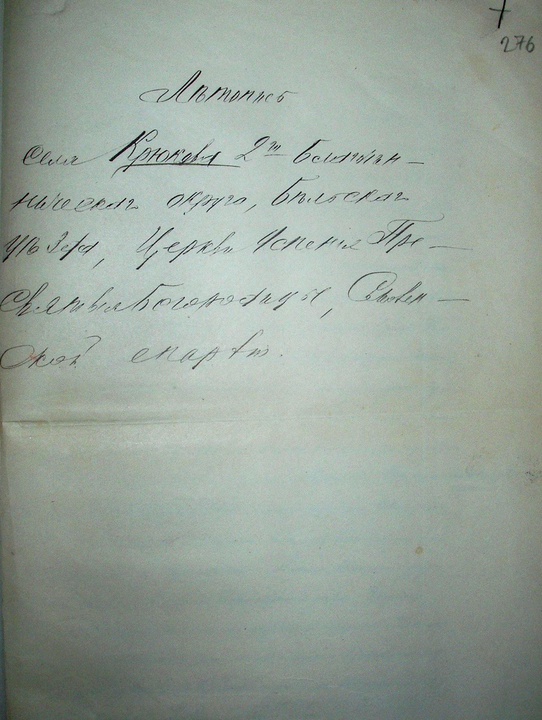 276
Лѣтопись
села Крюкова 2го благочин-
ническаго округа, Бѣльскаго
уѣзда, Церкви Успенія Пре-
святыя Богородицы, Смолен-
ской епархіи.